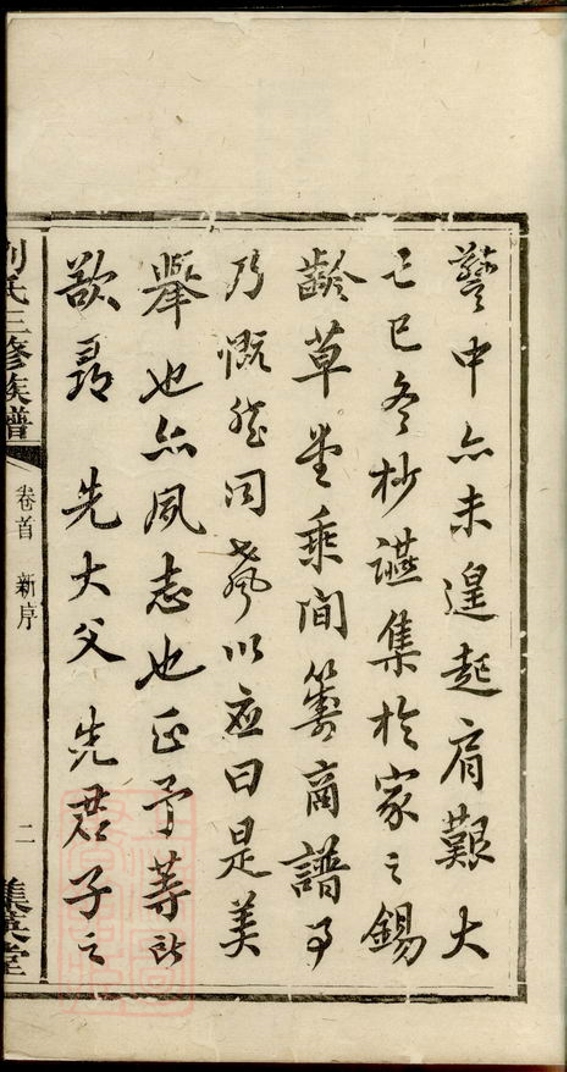 中亦未遑起肩艱大
己巳冬杪讌集於家之錫
齡草堂乘間籌商譜事
乃慨然同聲以應曰是美
舉也亦夙志也正予等所
欲尋 先大父 先君子之
劉氏三修族譜
卷首 新序
二
集英堂